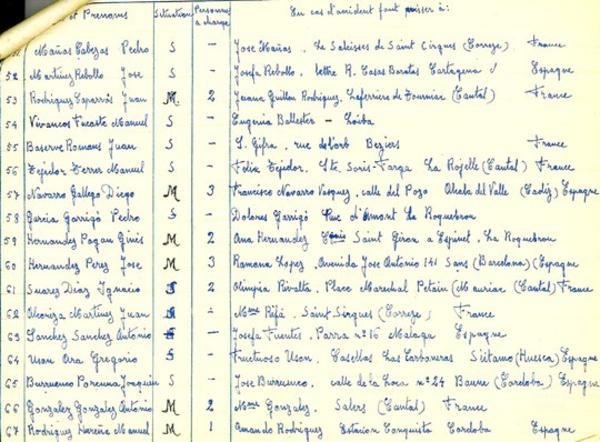 et Prénoms Situation Personnes à charge En cas d'accident faut passer à:
Mañas Cabezas Pedro S — Jose Mañas, La Salcisses de Saint Cirques (Correze) France
52 Martinez Rebollo Jose S — Josefa Rebollo, lettre R. Casas Baratas Cartagena Espagne
53 Rodriguez Caparrós Juan M 2 Juana Guillen Rodriguez, Laferriere de (Cantal) France
54 Vivancos Manuel S — Eugenia Ballester —
55 Baserve Romans Juan S — S. Gifra, rue de Beziers France
56 Tejedor Ferrer Manuel S — Felix Tejedor, (Cantal) France
57 Navarro Gallego Diego M 3 Francisco Navarro Vasquez, calle del Pozo Alcala del Valle (Cadiz) Espagne
58 Garcia Garrigó Pedro S — Dolores Garrigó Rue d'Amont La Roquebrou
59 Hernandez Pagan Ginés M 2 Ana Hernandez Saint Giron a Espinet, La Roquebrou
60 Hernandez Perez Jose M 3 Ramona Lopez, Avenida Jose Antonio 141 Sans (Barcelona) (Espagne
61 Suarez Diaz Ignacio 2 Olimpia Rivalta, Place Marechal Petain (Mauriac (Cantal) France
62 Martinez Juan — Mme Rifá, Saint Sirques (Correze, France
63 Sanchez Sanchez Antonio — Josefa Fuentes, Parra nº 16 Malaga Espagne
64 Uson Ora Gregorio S — Fructuoso Uson, Casellas Las Carboneras (Huesca) Espagne
65 Burrueco Joaquin S — Jose Burrueco, calle de la nº 24 Baene (Cordoba) Espagne
66 Gonzalez Gonzalez Antonio M 2 Mme Gonzalez, Salers (Cantal) France
67 Rodriguez Manuel M 1 Amando Rodriguez Estacion Conquista Cordoba Espagne